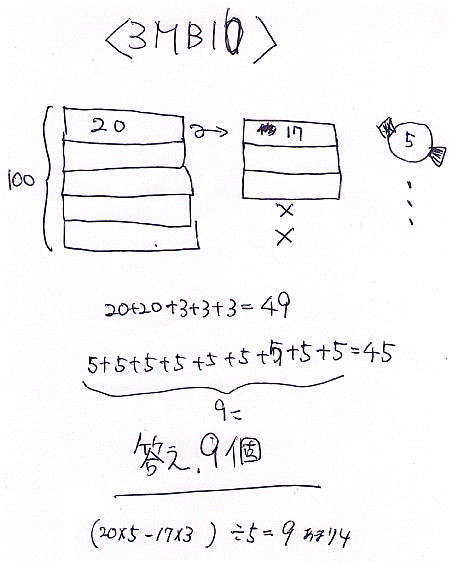 <3MB10>
20 → 17 5
100
×
×
20+20+3+3+3=49
5+5+5+5+5+5+5+5+5=45
9こ
答え.9個
(20×5-17×3 )÷5=9あまり4